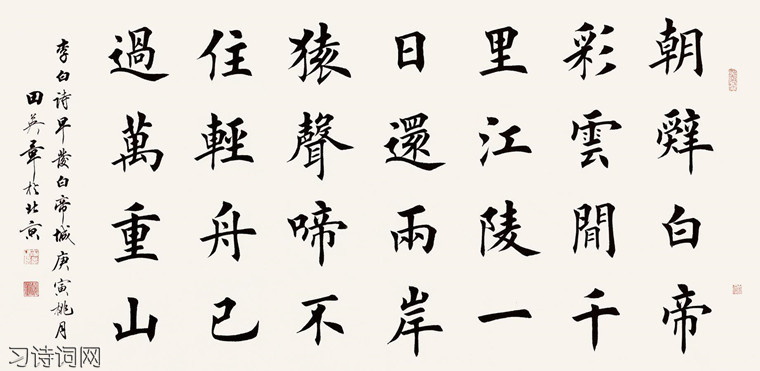 朝辤白帝
彩雲間千
里江陵一
日還兩岸
猿聲啼不
住輕舟已
過萬重山
李白诗早發白帝城庚寅桃月
田英章於北京
习诗词网